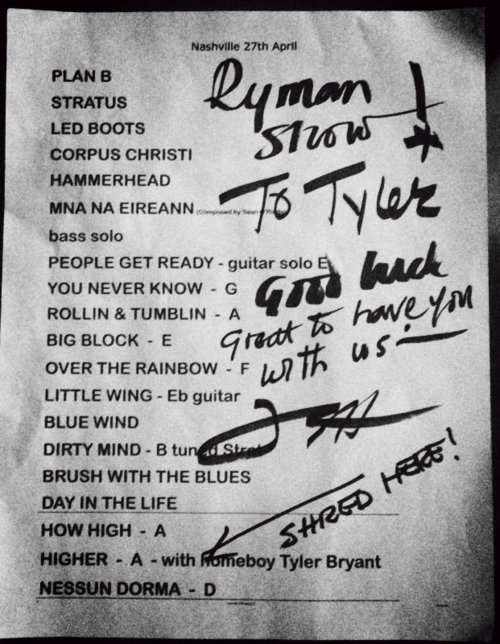 Nashville 27th April
PLAN B
STRATUS
LED BOOTS
CORPUS CHRISTI
HAMMERHEAD
MNA NA EIREANN (Composed by Sean
bass solo
PEOPLE GET READY - guitar solo E
YOU NEVER KNOW - G
ROLLIN & TUMBLIN - A
BIG BLOCK - E
OVER THE RAINBOW - F
LITTLE WING - Eb guitar
BLUE WIND
DIRTY MIND - B tuned Strat
BRUSH WITH THE BLUES
DAY IN THE LIFE
HOW HIGH - A
HIGHER - A - with homeboy Tyler Bryant
NESSUN DORMA - D
Ryman
Show!
To Tyler
Good luck
Great to have you
with us
SHRED HERE!